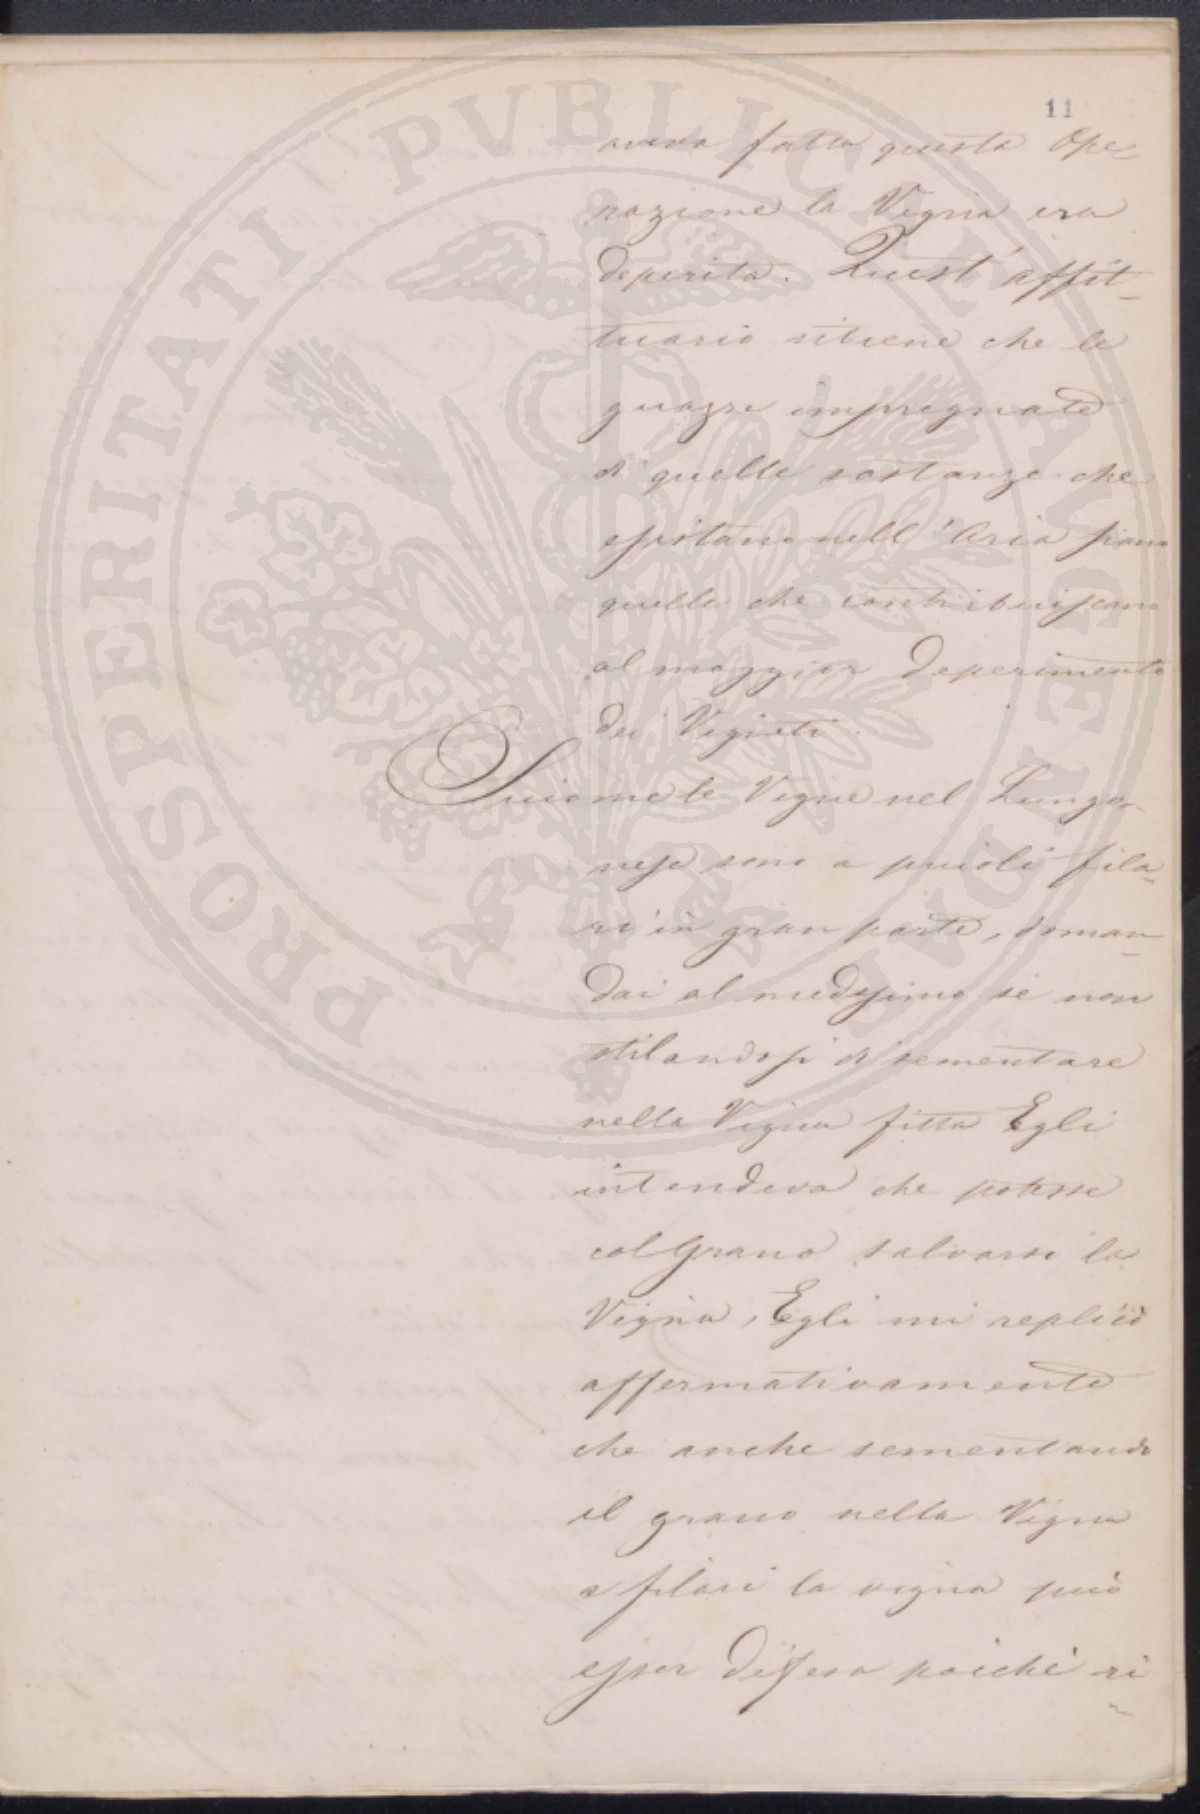 11
aveva fatta questa Ope-
razione la Vigna era
deperita. Quest'affit-
tuario ritiene che le
guazze impregnate
di quelle sostanze che
esistano nell'Aria siano
quelle che contribuiscano
al maggior deperimento
dei Vigneti.
Siccome le Vigne nel Lungo-
nese sono a piccoli fila-
ri in gran parte, doman-
dai al medesimo se non
stilandosi di sementare
nella Vigna fitta Egli
intendeva che potesse
col Grano salvarsi la
Vigna, Egli mi replicò
affermativamente
che anche sementando
il grano nella Vigna
a filari la vigna può
esser difesa poichè ri-
PROSPERITATI PVBLICAE AVGENDAE